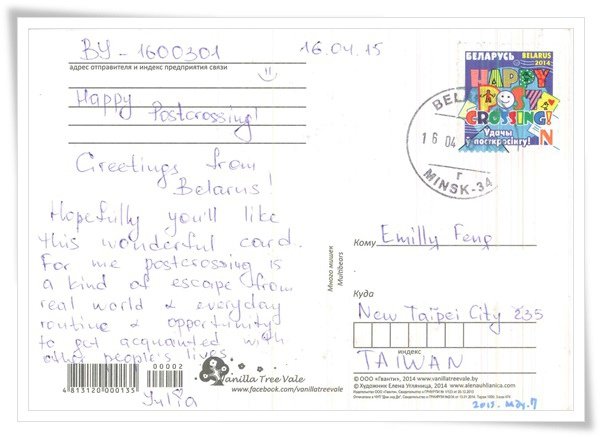 BY-1600301
16.04.15
адрес отправителя и индекс предприятия связи
Happy
Postcrossing!
Greetings from
Belarus!
Hopefully you'll like
this wonderful card.
For me postcrossing is
a kind of escape from
real world & everyday
routine & opportunity
to get acquanted with
other people's lives
Julia
БЕЛАРУСЬ BELARUS
2014
HAPPY
POST
CROSSING!
Удачы
ў посткросінгу! N
BELA
16 04
г
MINSK-34
Много мишек
Multibears
Кому Emilly Feng
Куда
New Taipei City 235
индекс
TAIWAN
00002
4813120000135
Vanilla Tree Vale
www.facebook.com/vanillatreevale
© ООО «Гванти», 2014 www.vanillatreevale.by
© Художник Елена Уляница, 2014 www.alenauhlianica.com
2015. May. 7